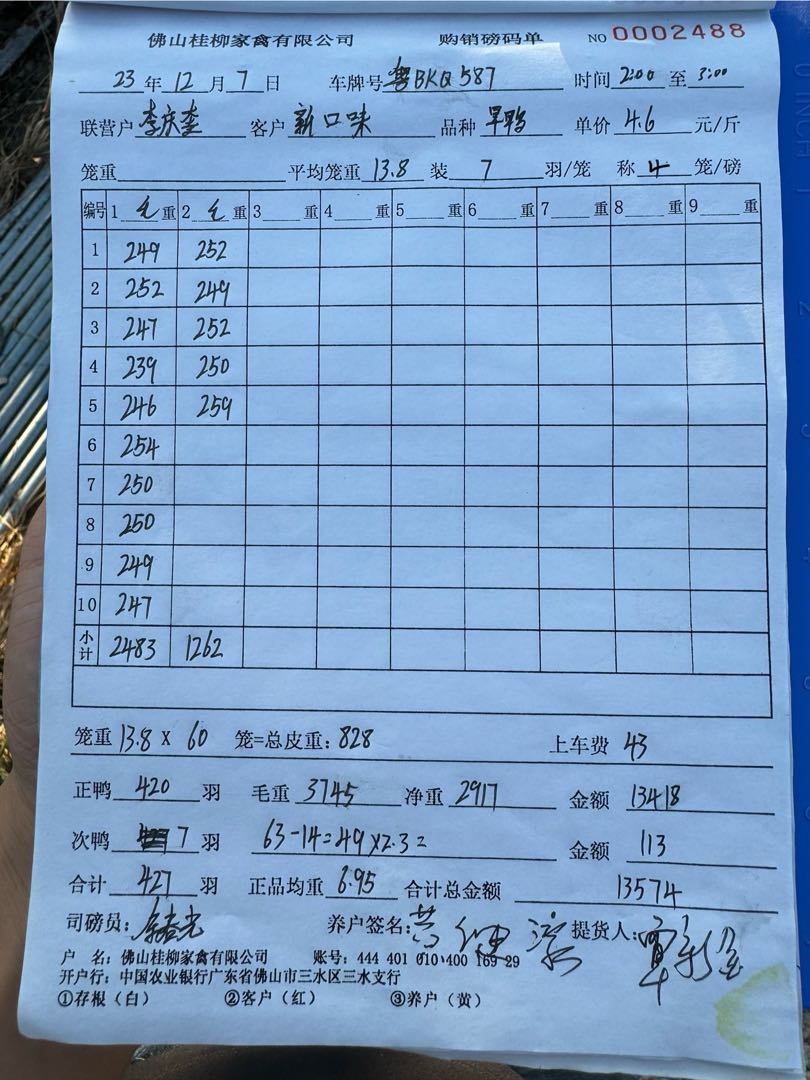 佛山桂柳家禽有限公司 购销磅码单 NO 0002488
23 年 12 月 7 日 车牌号 粤BKQ587 时间 2:00 至 3:00
联营户 李庆奎 客户 新口味 品种 旱鸭 单价 4.6 元/斤
笼重 平均笼重 13.8 装 7 羽/笼 称 4 笼/磅
编号 1 毛 重 2 毛 重 3 重 4 重 5 重 6 重 7 重 8 重 9 重
1 249 252
2 252 249
3 247 252
4 239 250
5 246 259
6 254
7 250
8 250
9 249
10 247
小计 2483 1262
笼重 13.8 X 60 笼=总皮重: 828 上车费 43
正鸭 420 羽 毛重 3745 净重 2917 金额 13418
次鸭 7 羽 63-14=49x2.3= 金额 113
合计 427 羽 正品均重 6.95 合计总金额 13574
司磅员: 养户签名: 提货人:
户 名: 佛山桂柳家禽有限公司 账号: 444 401 010 400 169 29
开户行: 中国农业银行广东省佛山市三水区三水支行
①存根(白) ②客户(红) ③养户(黄)